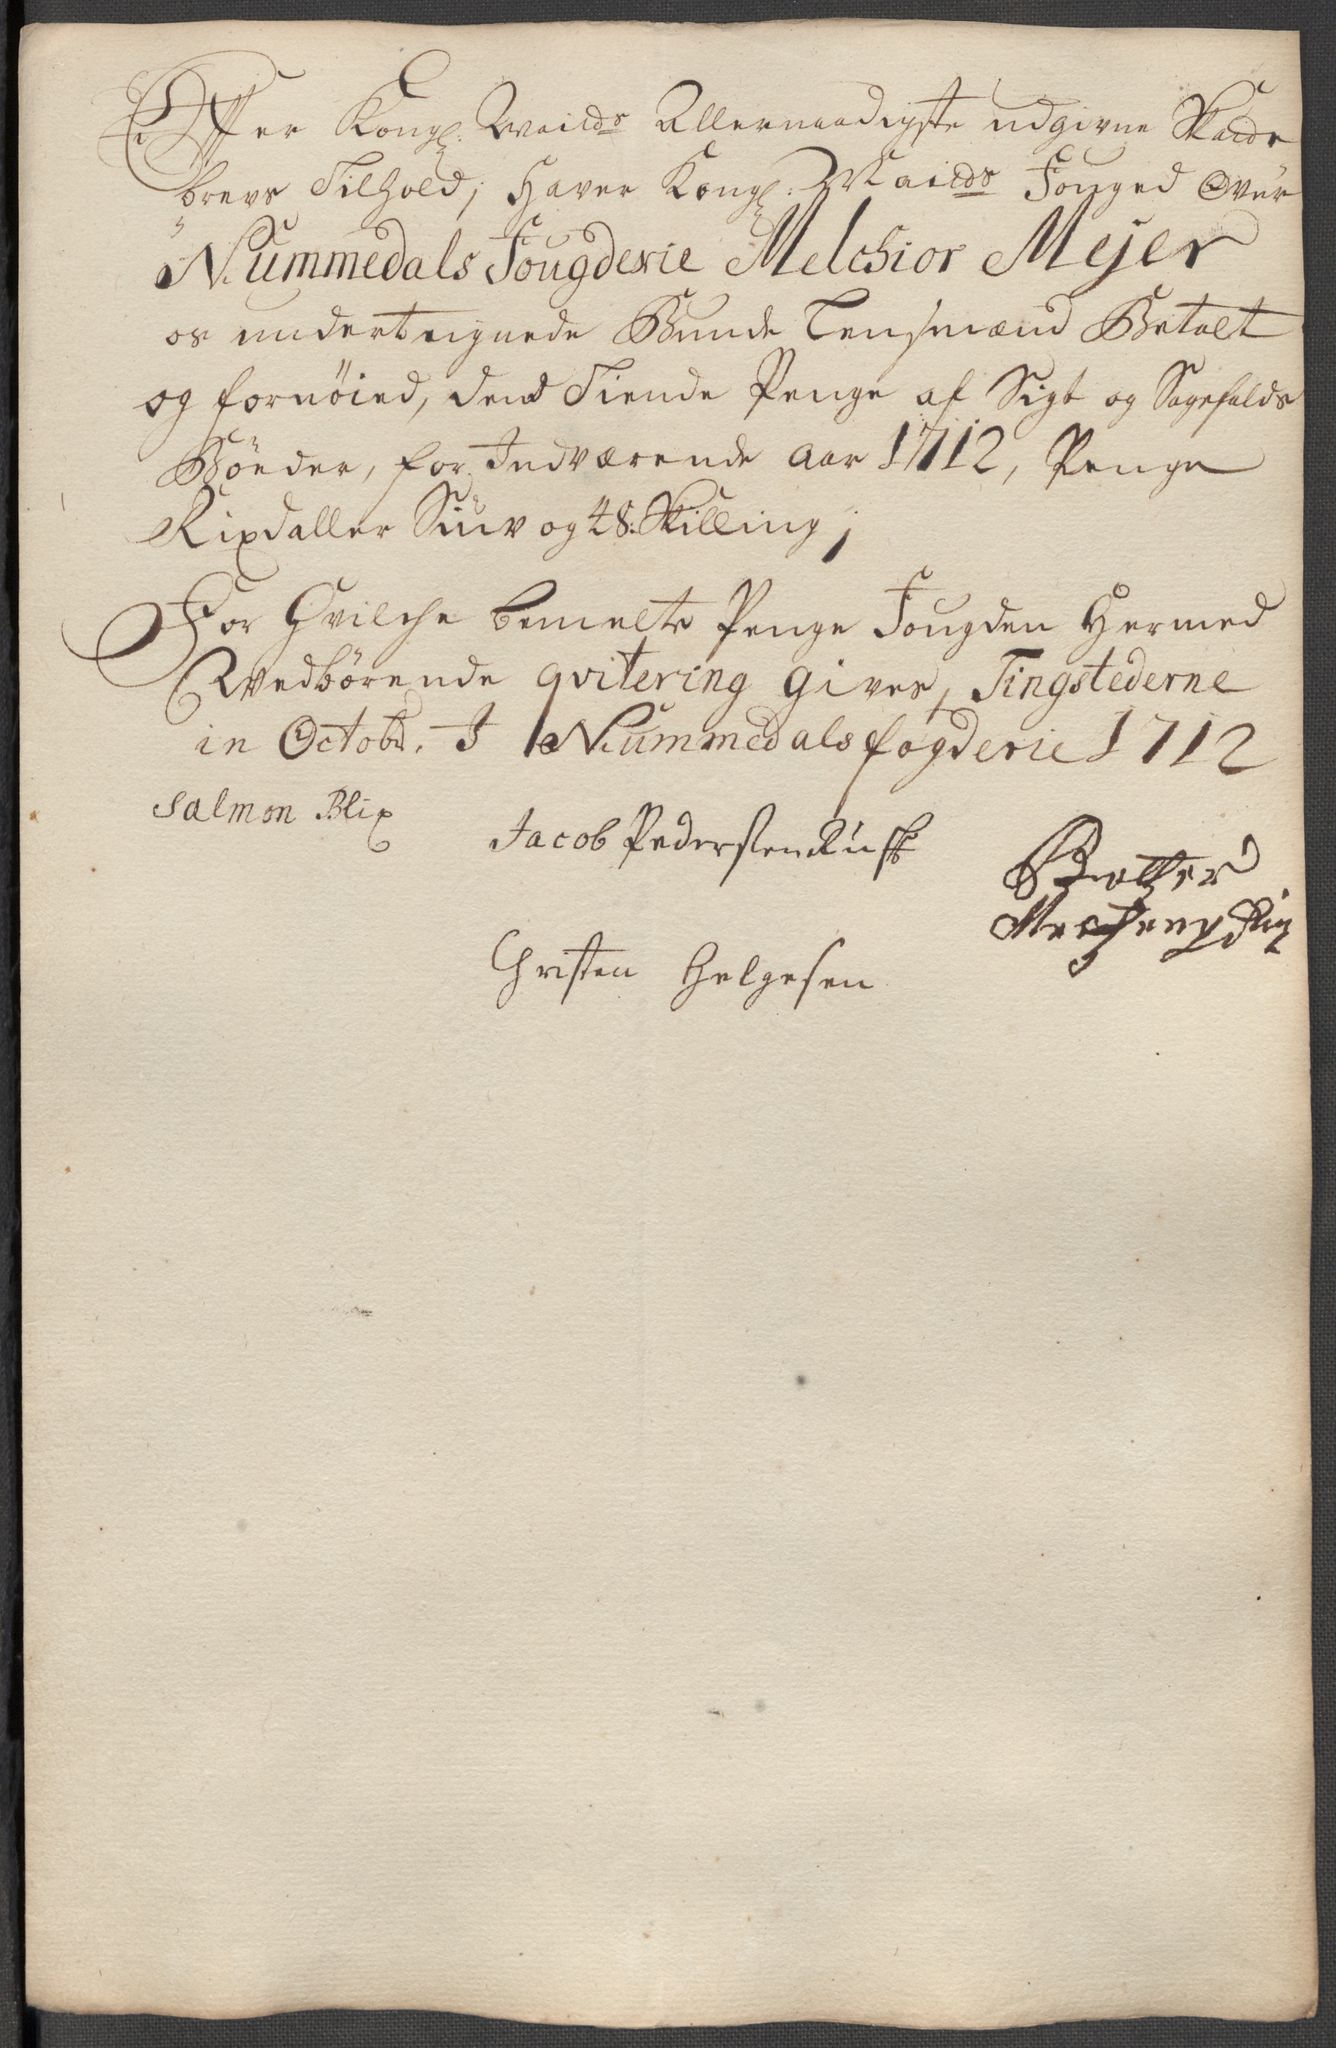 Effter Kongl: Maitds Allernaadigste udgivne Skatte
brevs Tilhold, Haver Kongl: Maitds Fouged Over
Nummedals Fougderie Melchior Mejer
os underteignede Bunde Lensmænd Betalt
og fornöied, dend Tiende Penge af Sigt og Sagefalds
Bönder, for Indværende Aar 1712, Penge
Rixdaller Siuv og 48: Skilling;
For Hvilche bemelte Penge Fougden Hermed
Vedbörende qvitering gives, Tingstederne
in Octobr. I Nummedals fogderie 1712
Salmon Blix
Jacob Pedersen Rusk
Christen Helgesen